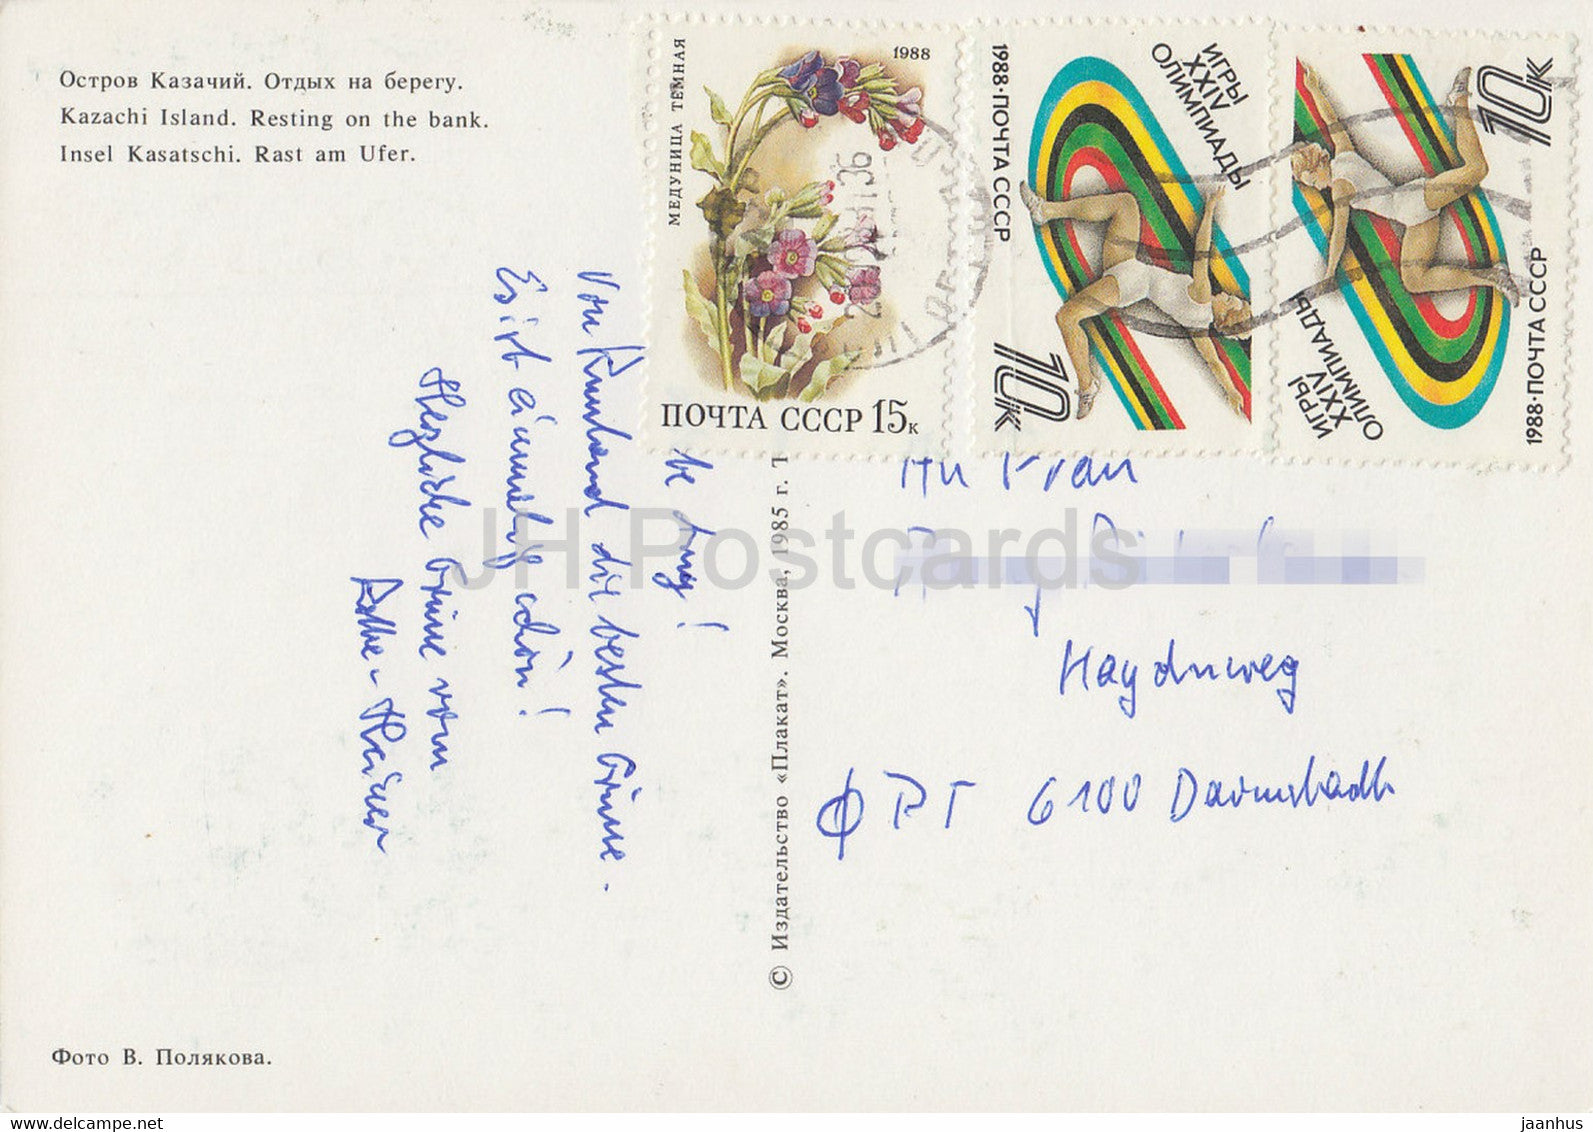 Остров Казачий. Отдых на берегу.
Kazachi Island. Resting on the bank.
Insel Kasatschi. Rast am Ufer.
МЕДУНИЦА ТЕМНАЯ
1988
ПОЧТА СССР 15к
1988·ПОЧТА СССР
ИГРЫ
XXIV
ОЛИМПИАДЫ
10к
1988·ПОЧТА СССР
ИГРЫ
XXIV
ОЛИМПИАДЫ
10к
Von Russland die besten Grüsse.
Es ist schön!
Herzliche Grüsse vom
An Frau
Haydnweg
ФРГ 6100 Darmstadt
© Издательство «Плакат». Москва, 1985 г. Т
Фото В. Полякова.
JH Postcards
www.delcampe.net
jaanhus